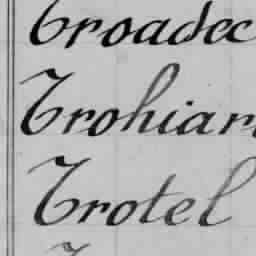 Troadec
Trohiar
Trotel